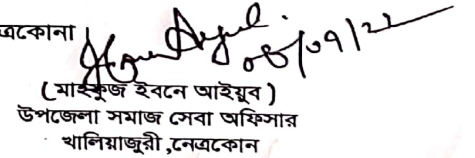 ত্রকোনা
08/09/22
(মাহফুজ ইবনে আইয়ুব)
উপজেলা সমাজ সেবা অফিসার
খালিয়াজুরী,নেত্রকোন